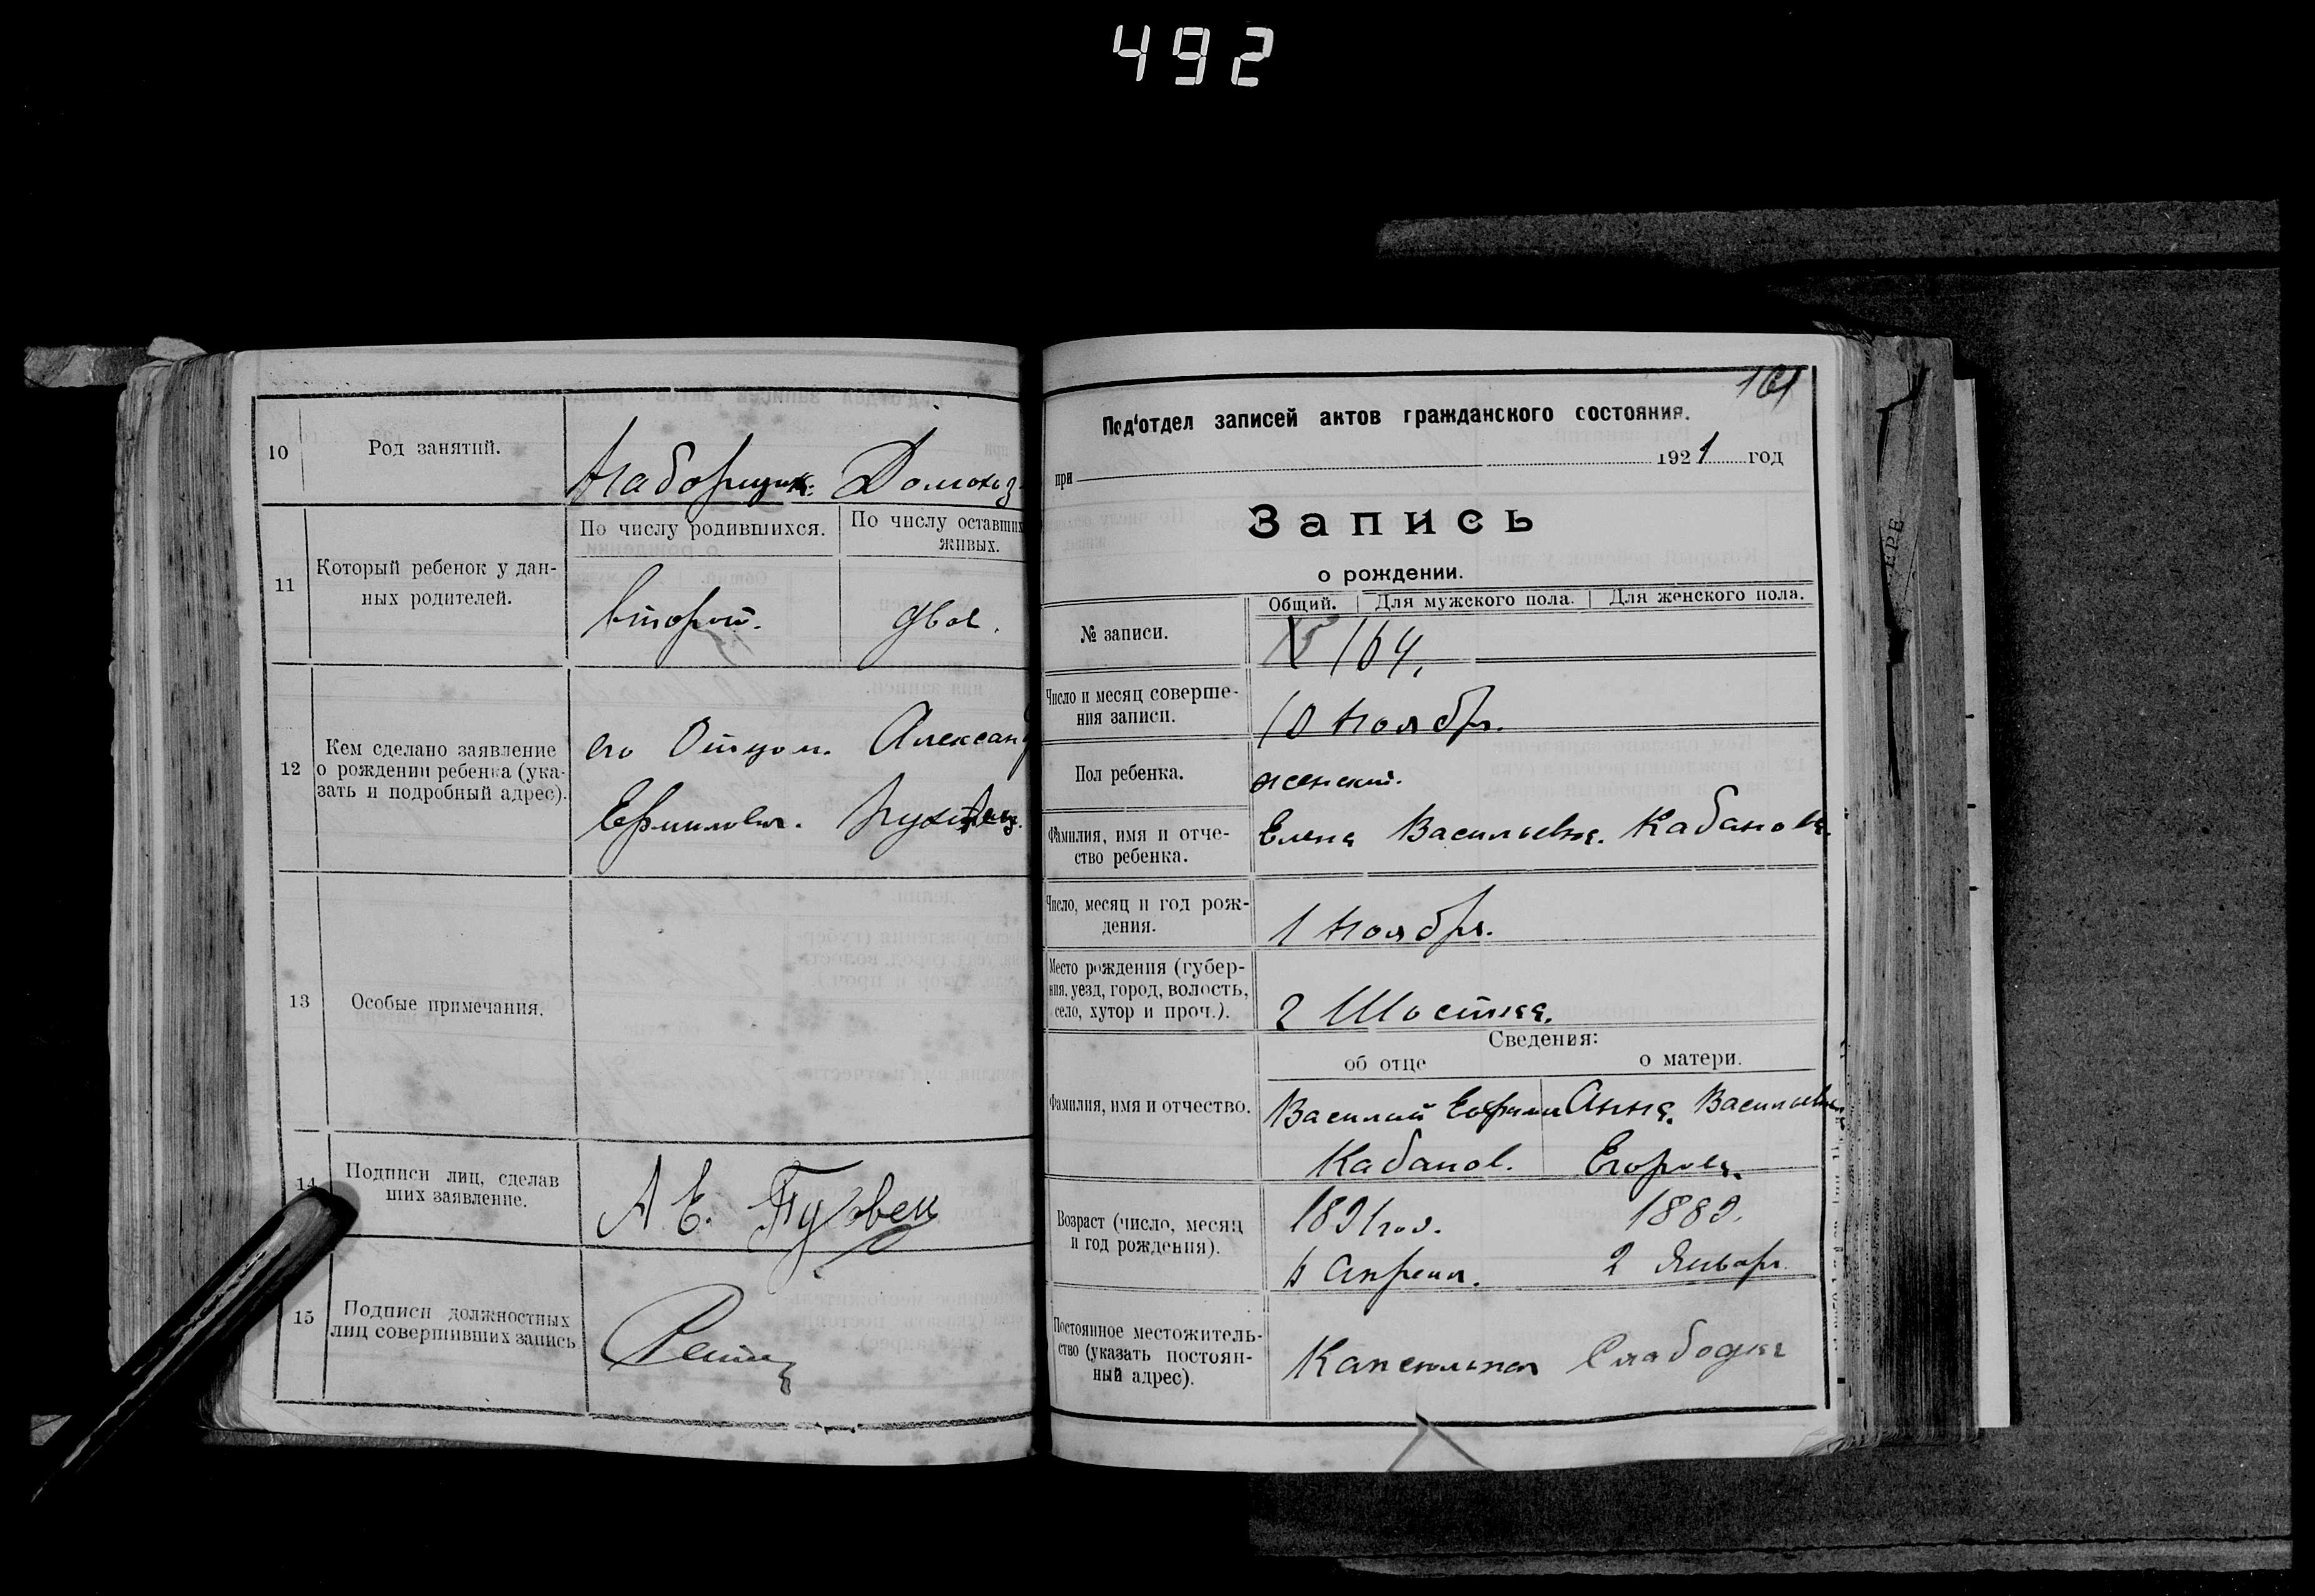 492
10 Род занятий. Наборщик. Домохоз
11 Который ребенок у дан-
ных родителей.
По числу родившихся. По числу оставших
живых.
второй. два.
12 Кем сделано заявление
о рождении ребенка (ука-
зать и подробный адрес).
его Отцом. Александ
13 Особые примечания.
14 Подписи лиц, сделав
ших заявление.
А. Е.
15 Подписи должностных
лиц совершивших запись
161
Под'отдел записей актов гражданского состояния.
при 1921 год
Запись
о рождении.
Общий. Для мужского пола. Для женского пола.
№ записи. № 164.
Число и месяц соверше-
ния записи.
10 Ноябр.
Пол ребенка. женский.
Фамилия, имя и отче-
ство ребенка.
Елена Васильевна. Кабанова.
Число, месяц и год рож-
дения.
1 Ноября.
Место рождения (губер-
ния, уезд, город, волость,
село, хутор и проч.).
г Шостка.
Сведения:
об отце о матери.
Фамилия, имя и отчество.
Василий Анна Васильевна
Кабанов. Егорова.
Возраст (число, месяц
и год рождения).
1891 год. 1889.
Апреля. 2 Января
Постоянное местожитель-
ство (указать постоян-
ный адрес).
Капсюльная Слободка